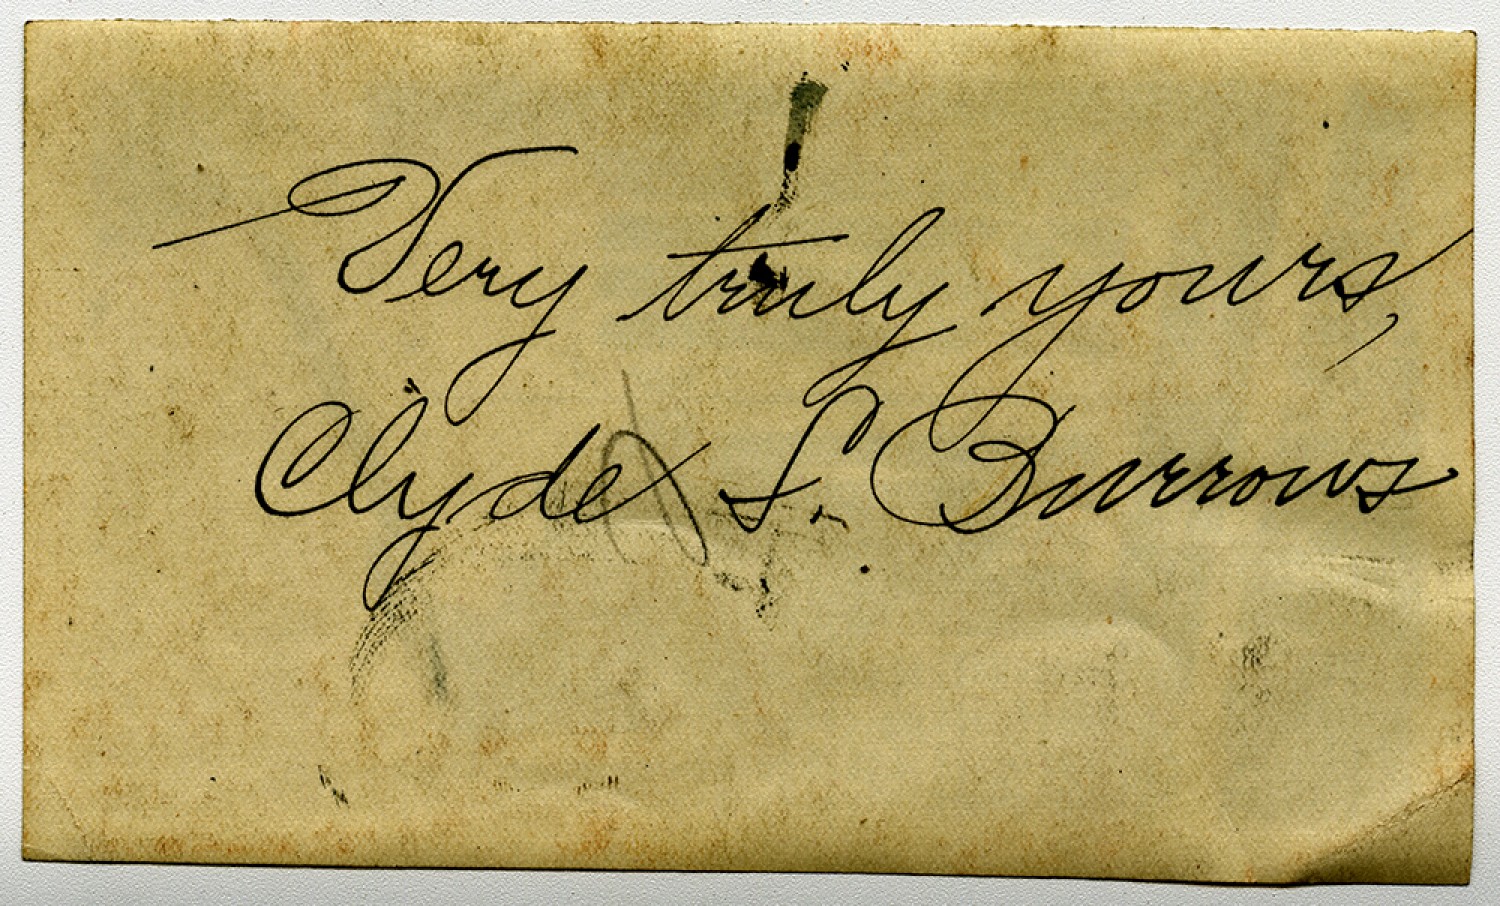 Very truly yours,
Clyde S. Burrows